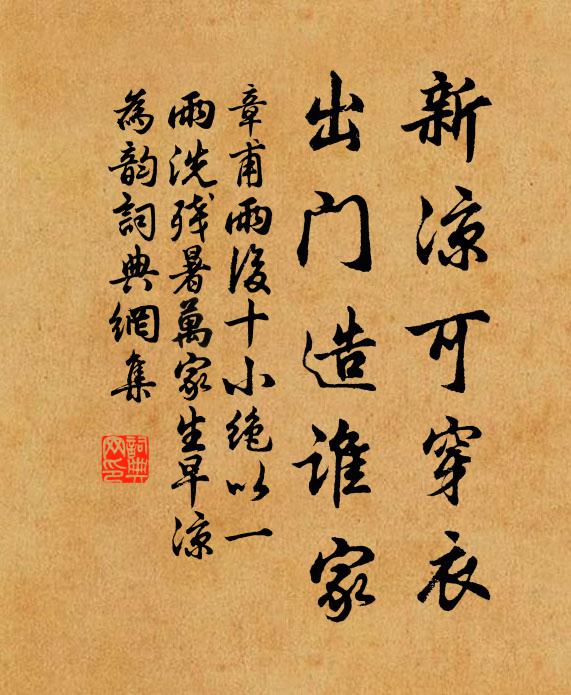 新凉可穿衣
出门造谁家
章甫雨後十小绝以一
雨洗残暑萬家生早凉
為韵詞典網集
詞典网印